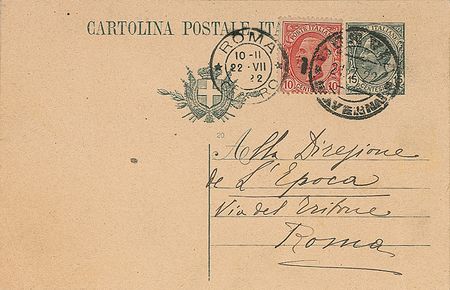 CARTOLINA POSTALE ITA
ROMA
10-11
22·VII
22
POSTE ITALIANE
10 CENT 10
15 CENT 15
20
Alla Direzione
de L'Epoca
Via del Tritone
Roma